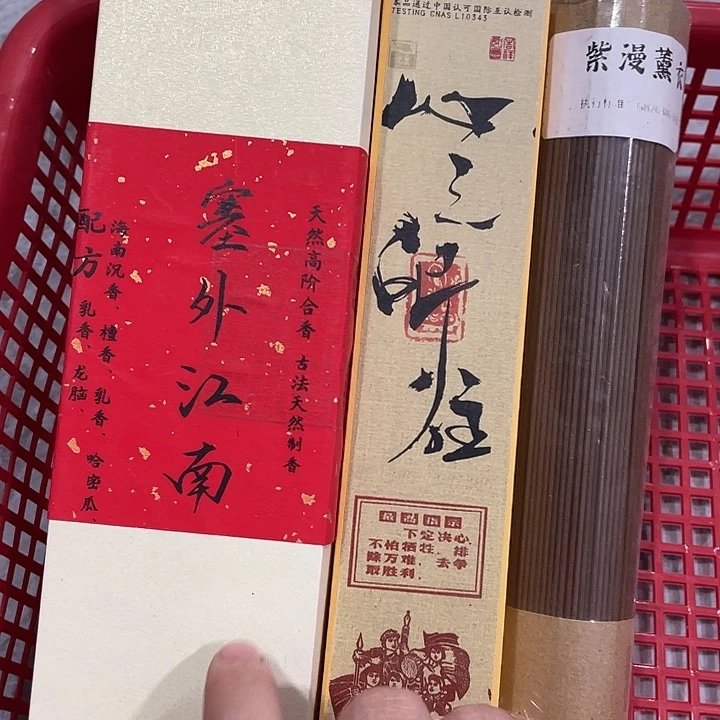 天然高阶合香 古法天然制香
塞外江南
配方
海南沉香、檀香、乳香、哈密瓜、
乳香、龙脑、
品通过中国认可国际互认检测
TESTING CNAS L10343
心之所往
最高指示
下定决心,
不怕牺牲, 排
除万难, 去争
取胜利.
紫漫薰